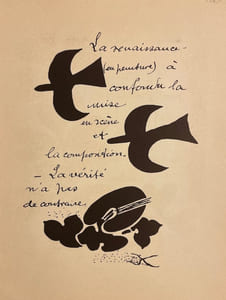 La renaissance
(en peinture) à
confondu la
mise
en scène
et
la composition.
– La vérité
n'a pas
de contraire.